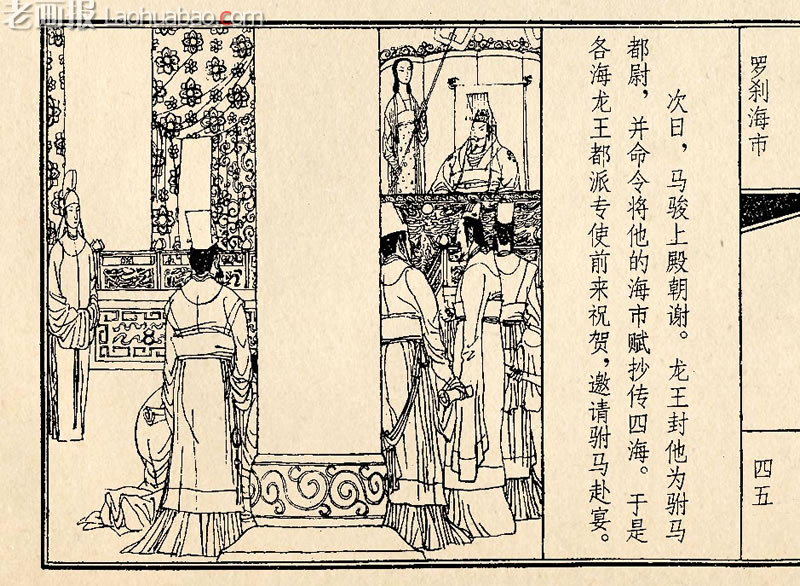 老画报
Laohuabao.com
罗刹海市
次日，马骏上殿朝谢。龙王封他为驸马
都尉，并命令将他的海市赋抄传四海。于是
各海龙王都派专使前来祝贺，邀请驸马赴宴。
四五